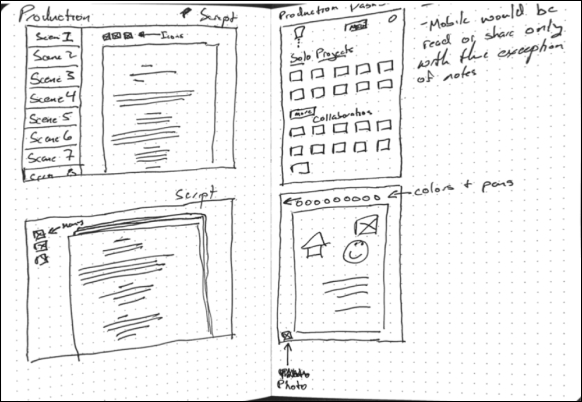 Production
Script
Scene 1
Scene 2
Scene 3
Scene 4
Scene 5
Scene 6
Scene 7
Icons
Script
Production
Solo Projects
more
Collaboration
- Mobile would be
read or share only
with the exception
of notes
colors + pens
Photo